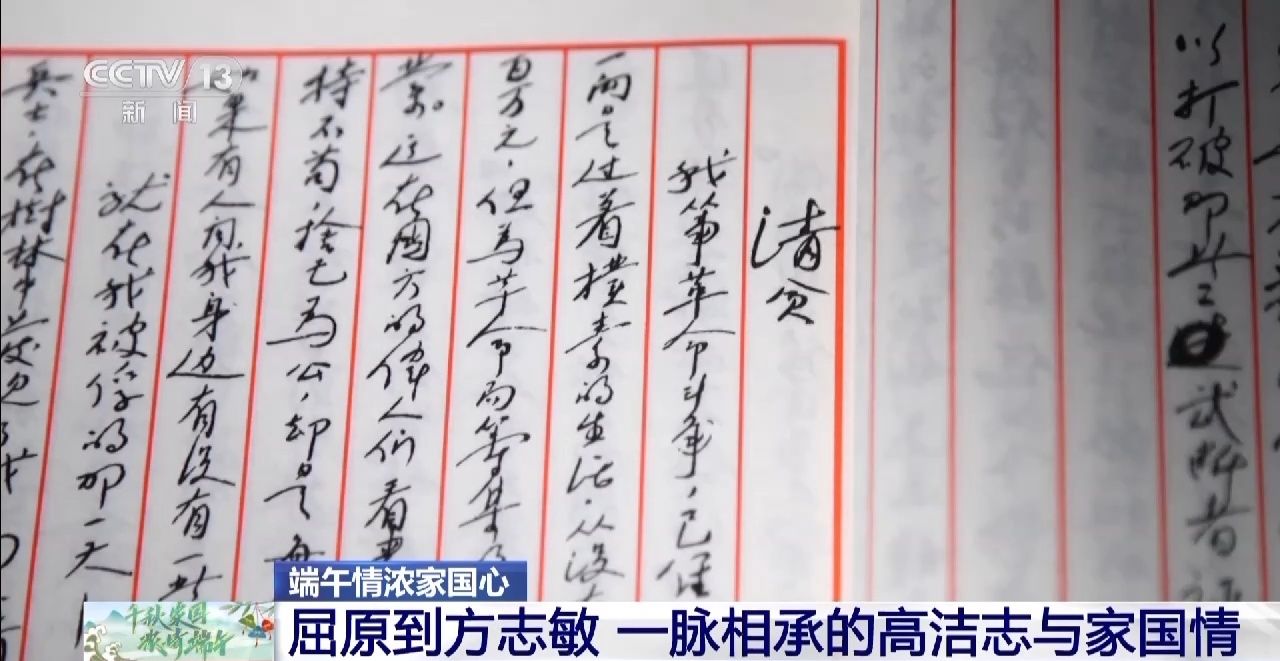 CCTV 13
新闻
以打破那些武断者
清贫
我从事革命斗争,已经
一向是过着樸素的生活,从没
百万元,但為革命而筹集的
业。这在國方的偉人们看来
持不苟,捨己為公,却是每
果有人问我身边有没有一些
就在我被俘的那一天
兵士,在樹林中发见了我
端午情浓家国心
千秋家国
浓情端午
屈原到方志敏 一脉相承的高洁志与家国情